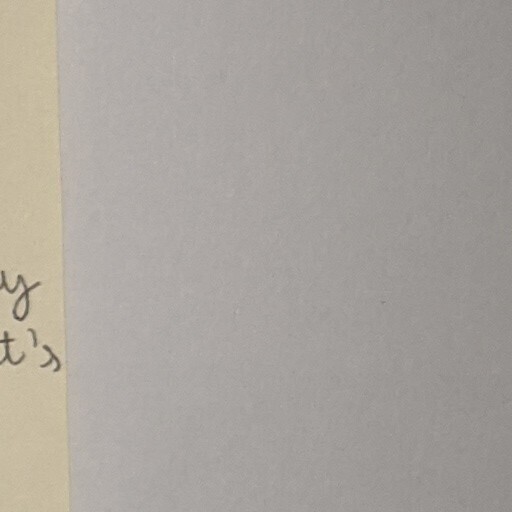 y
t's